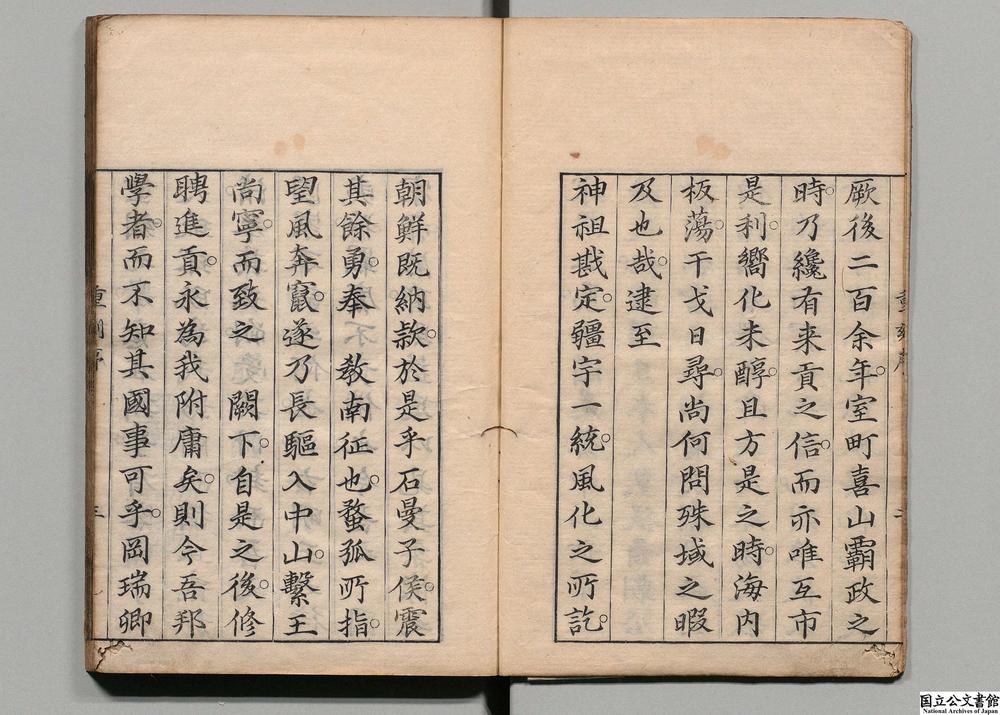 厥後二百余年。室町喜山霸政之
時。乃纔有来貢之信。而亦唯互市
是利。嚮化未醇。且方是之時。海内
板蕩。干戈日尋。尚何問殊域之暇
及也哉。逮至
神祖戡定。疆宇一統。風化之所訖。
朝鮮既納款。於是乎石曼子侯。震
其餘勇。奉　教南征也。蝥弧所指。
望風奔竄。遂乃長驅入中山。繫王
尚寧。而致之　闕下。自是之後。修
聘進貢。永為我附庸矣。則今吾邦
學者。而不知其國事可乎。岡瑞卿
二
三
国立公文書館
National Archives of Japan